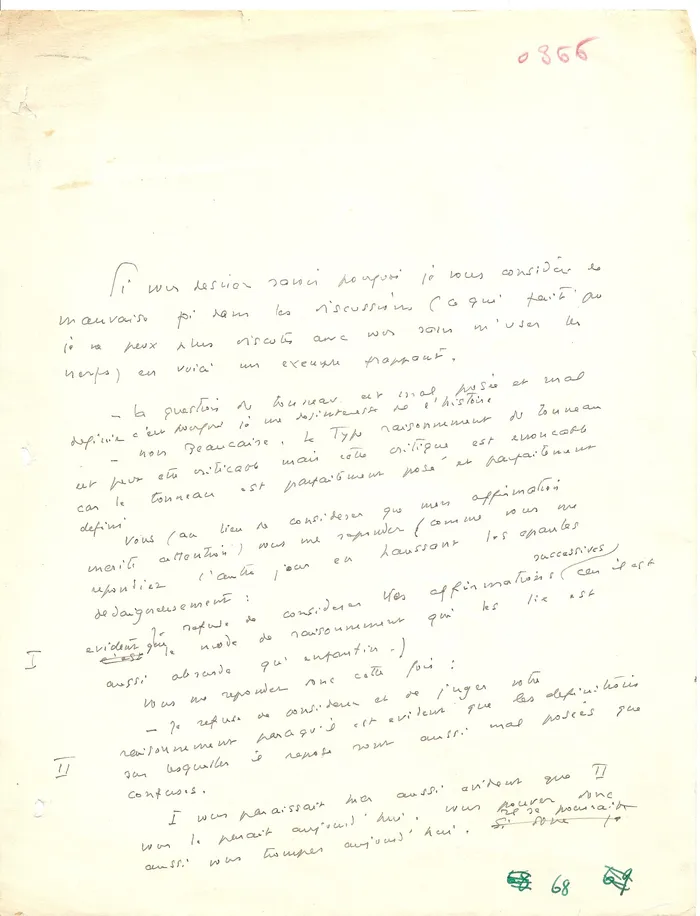 0366
Si vous desirer savoir pourquoi je vous considère de
mauvaise foi dans les discussions (ce qui fait que
je ne peux plus discuter avec vous sans m'user les
nerfs) en voici un exemple frappant.
– La question du tonneau est mal posée et mal
definie c'est pourquoi je me desinteresse de l'histoire
– non Beaucaire. Le Type raisonnement du tonneau
est peut etre criticable mais cette critique est enoncable
car le tonneau est parfaitement posé et parfaitement
defini
Vous (au lieu de considerer que mon affirmation
merite attention) vous me repondez (comme vous me
repondiez l'autre jour en haussant les epaules
dedaigneusement :
I Je refuse de considerer vos affirmations successives (car il est
evident que le mode de raisonnement qui les lie est
aussi absurde qu'enfantin.)
Vous me repondez donc cette fois :
II – Je refuse de considerer et de juger votre
raisonnement parcequ'il est evident que les definitions
sur lesquelles il repose sont aussi mal posées que
confuses.
I vous paraissait hier aussi evident que II
vous le parait aujourd'hui. Vous pouvez donc
aussi vous tromper aujourd'hui. Si donc je
68